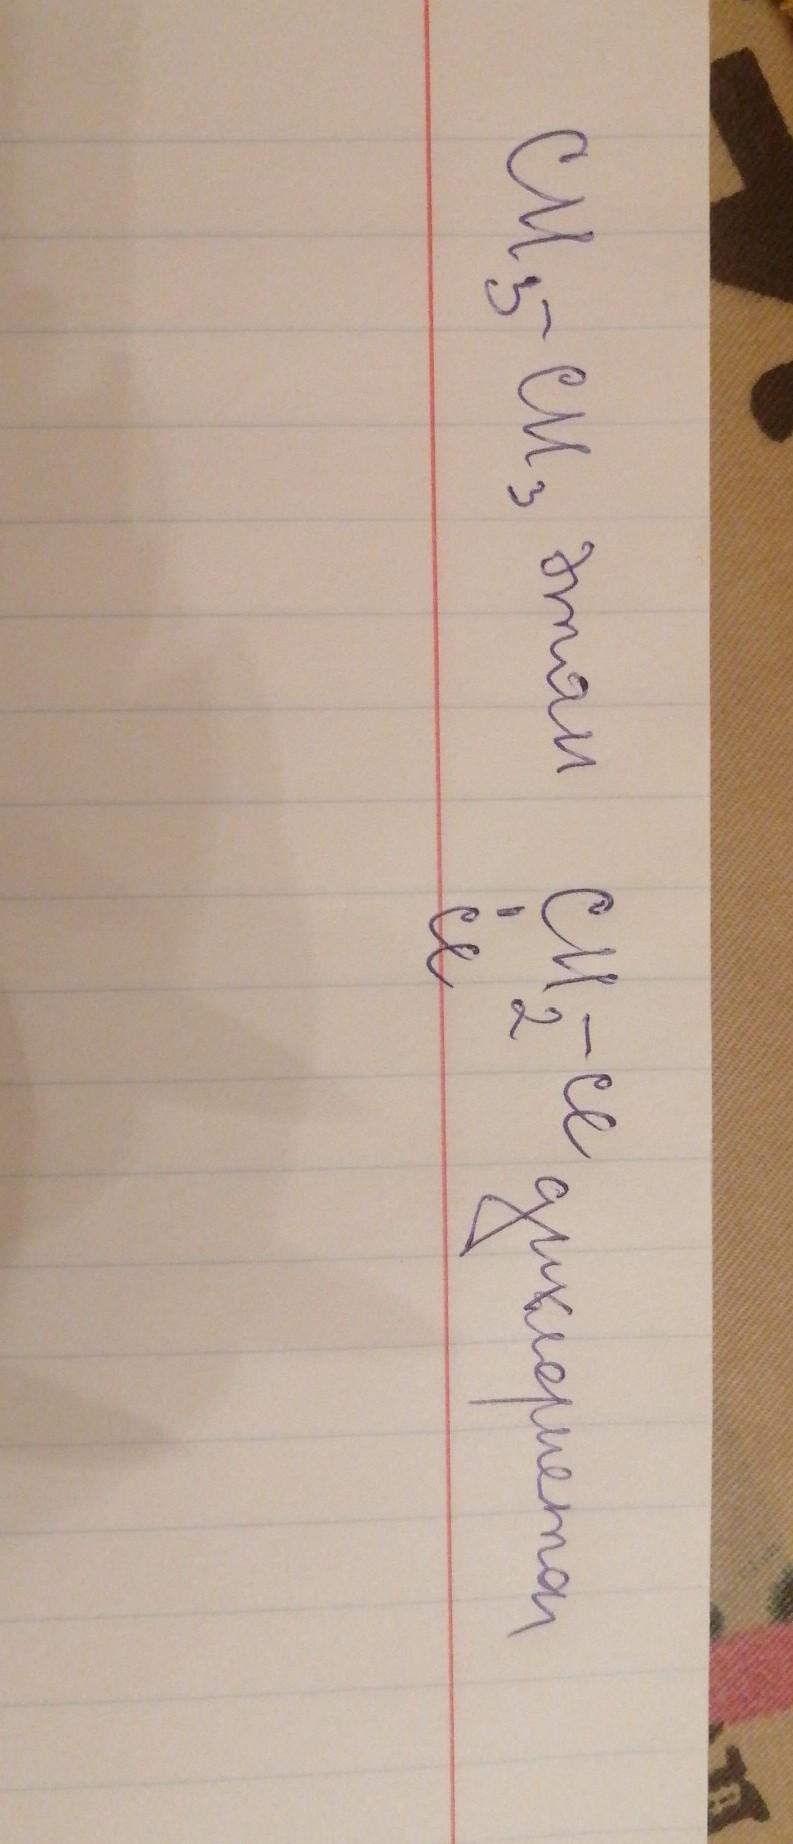 CH3-CH3 этан CH2-Cl дихлорметан
Cl